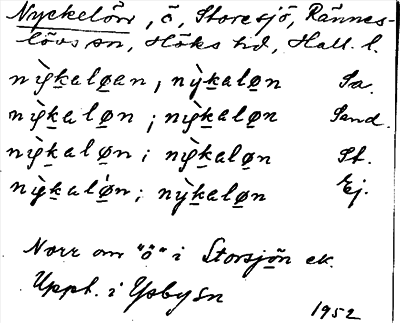 Nyckelörr, ö, Storesjö, Rännes-
lövs sn, Höks hd, Hall. l.
nỳk̲alø̲an, nỳk̲alø̲n Sa.
nỳk̲alø̲n; nỳk̲alø̲n Sand.
nỳk̲alø̲n; nỳk̲alø̲n St.
nỳk̲alø̲n; nỳk̲alø̲n Ej.
Norr om "ö" i Storsjön ek.
Uppt. i Ysby sn
1952